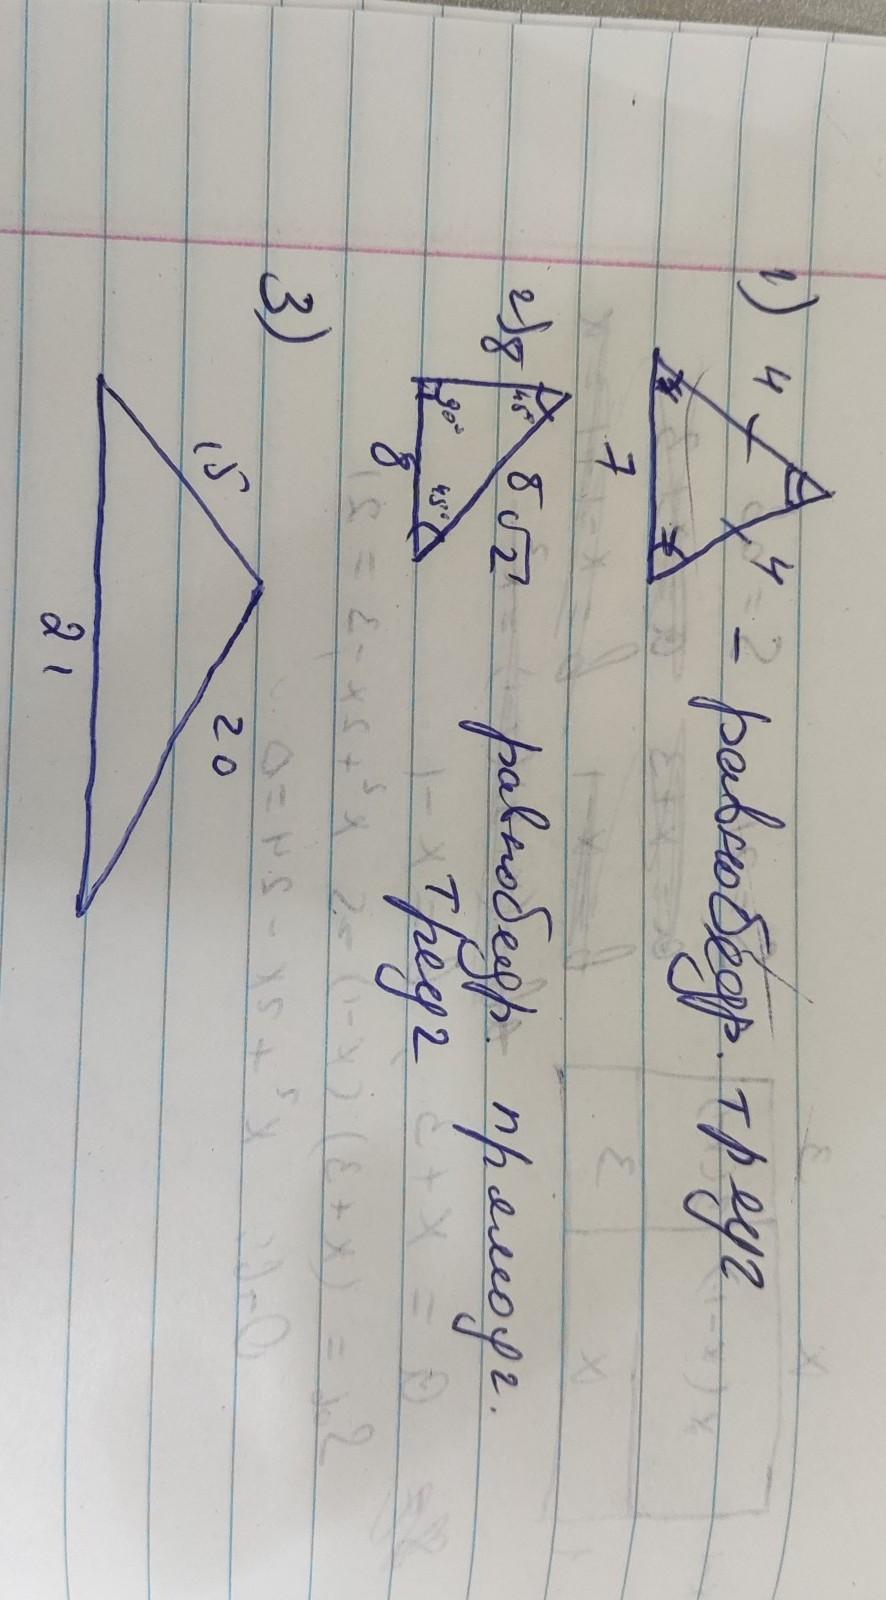 1) 4 4 – равнобедр. треуг
7
2) 8 45° 8√2 равнобедр. прямоуг.
90° 45° треуг
8
3)
15 20
21